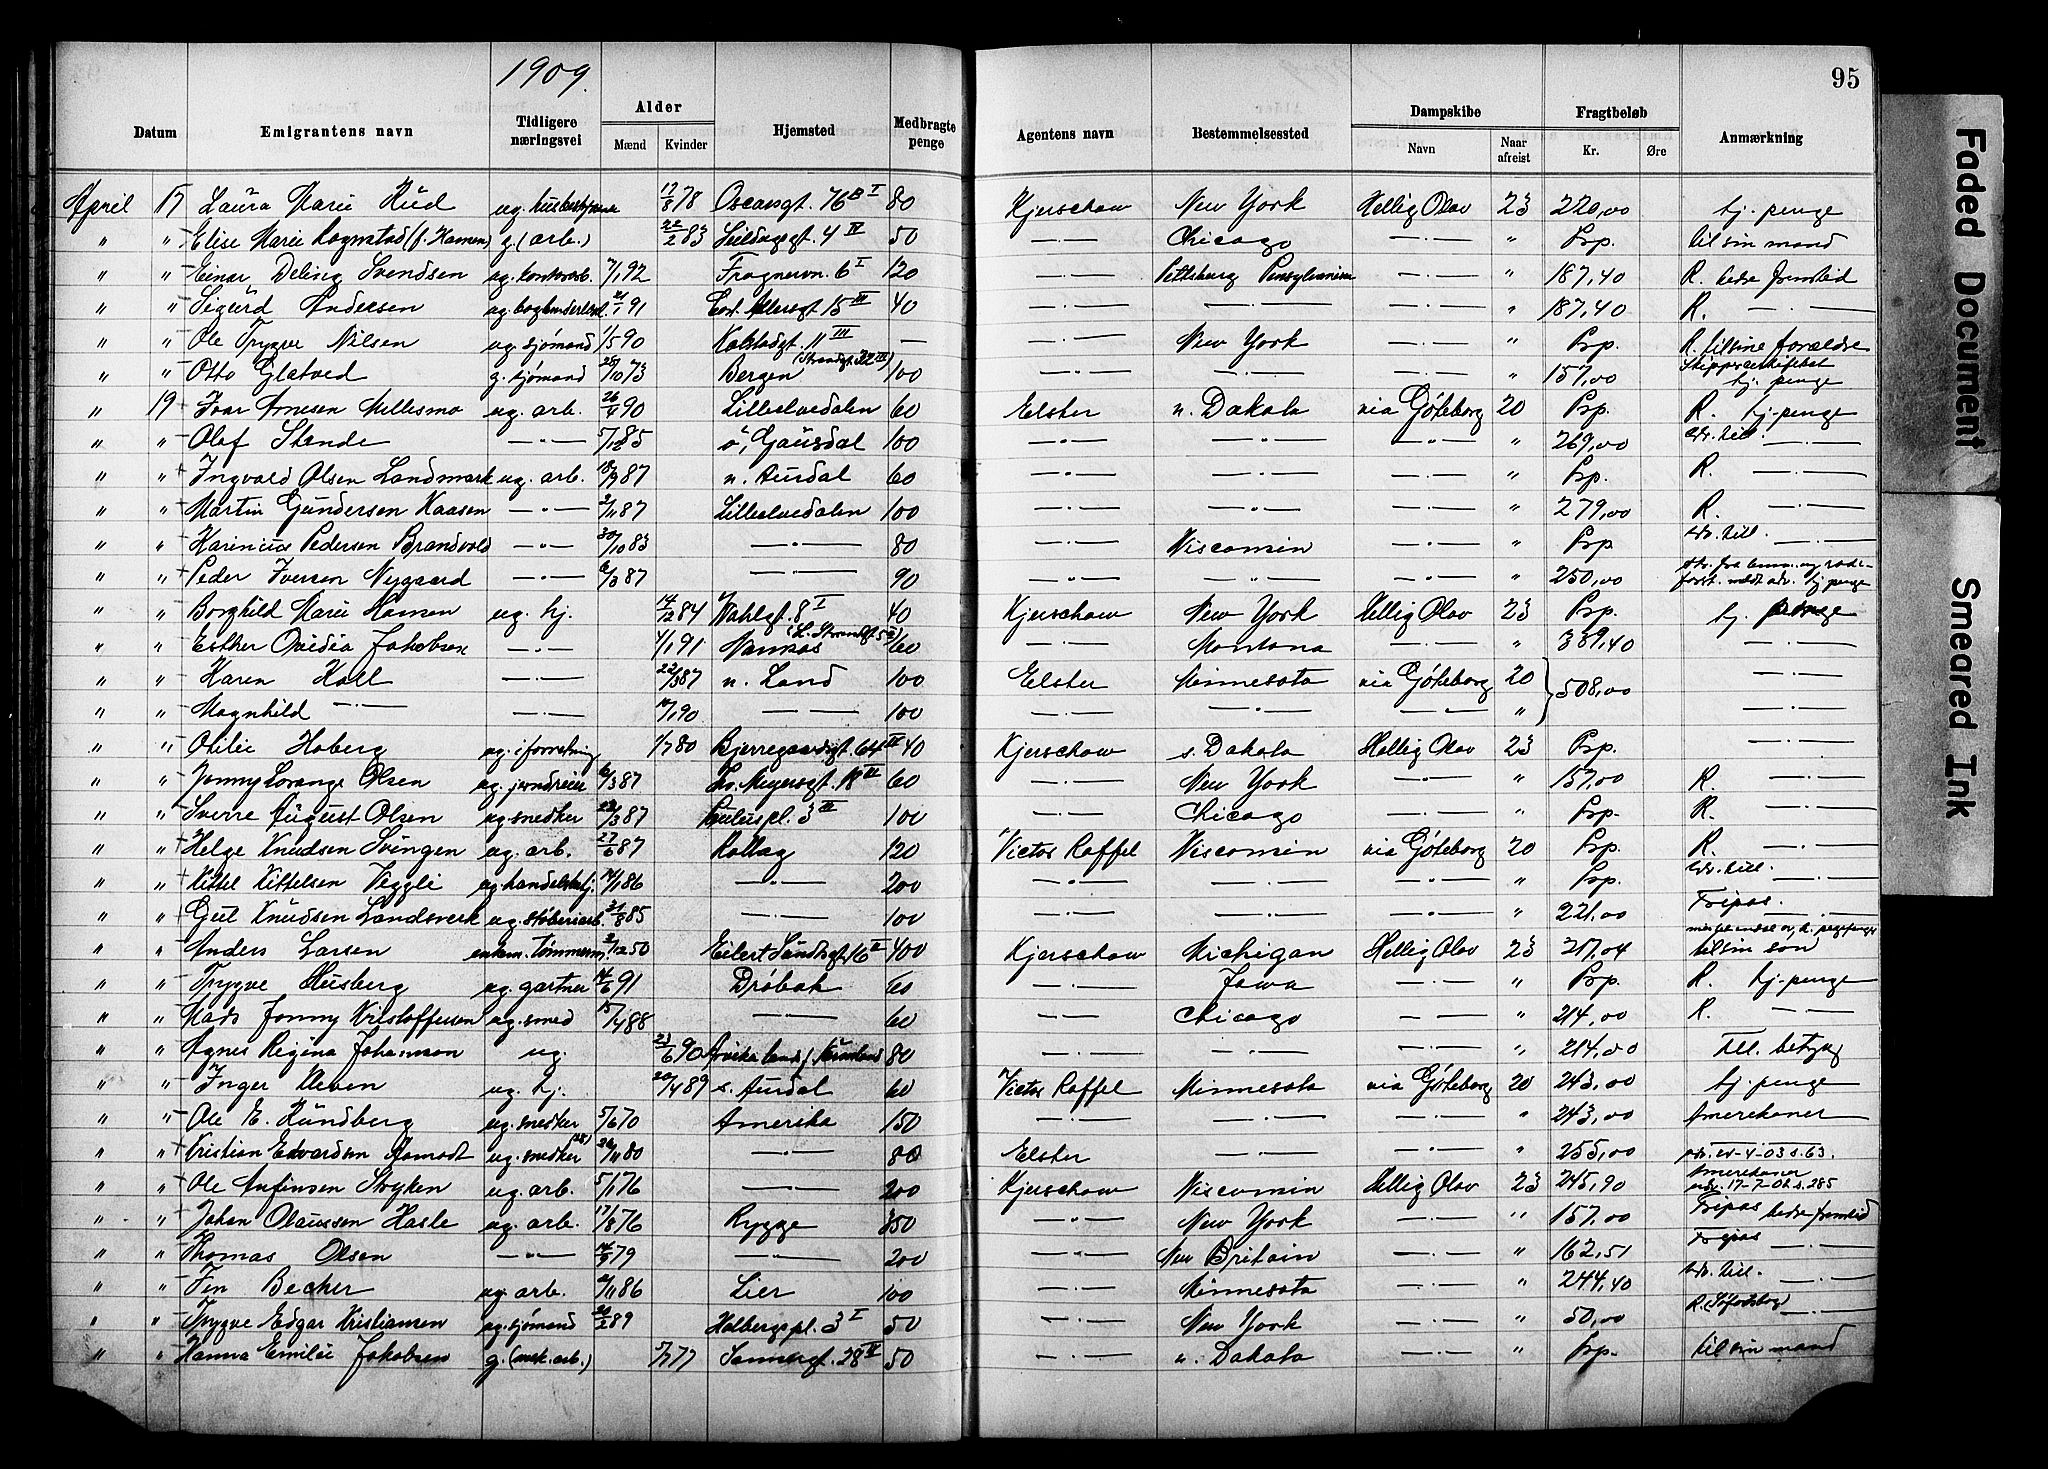 1909.
95
Datum Emigrantens navn Tidligere næringsvei Alder Mænd Kvinder Hjemsted Medbragte penge Agentens navn Bestemmelsessted Dampskibe Navn Naar afreist Fragtbeløb Kr. Øre Anmærkning
April 17 Laura Marie Rud ug. 17/8 78 Oscarsgt. 76 B I 80 Kjerschow New York Hellig Olav 23 220,00 bj. penge
" " Elise Marie Rognstad (f. Hansen) g. (arb.) 22/2 83 Seildugsgt. 4 IV 50 —"— Chicago —"— " Pp. til sin mand
" " Einar Deliseg Svendsen ug. kontorarb. 7/1 92 Frognervn. 6 I 120 —"— Pittsburg Pensylvanien —"— " 187,40 R. bedre fremtid
" " Sigurd Andersen ug. 21/1 91 15 III 40 —"— —"— —"— " 187,40 R. —"—
" " Ole Trygve Nilsen ug. sjømand 1/5 90 11 III — —"— New York —"— " Pp. R. til sine forældre
" " Otto Glatved g. sjømand 28/10 73 Bergen 100 —"— —"— —"— " 157,00 bj. penge
" 19 Ivar Arnesen Mellesmo ug. arb. 26/4 90 Lilleelvedalen 60 Elster n. Dakota via Göteborg 20 Pp. R. bj. penge
" " Olaf Stende —"— 5/12 85 ø. Gausdal 100 —"— —"— —"— " 269,00 adr. till. —"—
" " Ingvald Olsen Landmark ug. arb. 18/9 87 n. Aurdal 60 —"— —"— —"— " Pp. R. —"—
" " Martin Gundersen Kaasen —"— 2/11 87 Lilleelvedalen 100 —"— —"— —"— " 279,00 R. —"—
" " Karinius Pedersen Brandvold —"— 30/10 83 —"— 80 —"— Visconsin —"— " Pp. adr. till. —"—
" " Peder Iversen Nygaard —"— 6/3 87 —"— 90 —"— —"— —"— " 250,00 bj. penge
" " Borghild Marie Hansen ug. hj. 14/12 84 Wahlsgt. 8 I 40 Kjerschow New York Hellig Olav 23 Pp. bj. penge
" " Esther Ovidia Jakobsen —"— 4/1 91 Namsos 160 —"— Montana —"— " 389,40 —"—
" " Karen Koll —"— 22/3 87 n. Land 100 Elster Minnesota via Göteborg 20 508,00 —"—
" " Magnhild —"— —"— 10/1 90 —"— 100 —"— —"— —"— " —"—
" " Otilie Hoberg ug. i forretning 1/7 80 Bjerregaardsgt. 64 III 40 Kjerschow s. Dakota Hellig Olav 23 Pp. —"—
" " Jonny Lorange Olsen ug. jerndreier 6/3 87 Thv. Meyersgt. 18 III 60 —"— New York —"— " 157,00 R. —"—
" " Sverre August Olsen ug. snedker 23/3 87 Paulus pl. 3 III 100 —"— Chicago —"— " Pp. R. —"—
" " Helge Knudsen Svingen ug. arb. 27/6 87 Rollag 120 Victor Roffel Visconsin via Göteborg 20 Pp. R. —"—
" " Kittel Kittelsen Veggli ug. handelsbetj. 14/1 86 —"— 200 —"— —"— —"— " Pp. adr. till. —"—
" " Gul Knudsen Landsverk ug. støberiarb. 31/8 85 —"— 100 —"— —"— —"— " 221,00 Fripas. —"—
" " Anders Larsen enkem. tømmerm. 2/12 50 Eilert Sundtsgt. 16 II 400 Kjerschow Michigan Hellig Olav 23 217,04 til sin søn
" " Trygve Husberg ug. gartner 14/6 91 Drøbak 60 —"— Jowa —"— " Pp. R. bj. penge
" " Mads Jonny Kristoffersen ug. smed 15/4 88 —"— 60 —"— Chicago —"— " 214,00 R. —"—
" " Agnes Regina Johanson ug. 23/6 90 Arvika land, Värmland 80 —"— —"— —"— " 214,00 till. betyg
" " Inger Kleven ug. hj. 20/4 89 s. Aurdal 60 Victor Roffel Minnesota via Göteborg 20 243,00 bj. penge
" " Ole E. Rundberg ug. snedker 5/6 70 Amerika 150 —"— —"— —"— " 243,00 Amerikaner
" " Kristian Edvardsen Aamodt ug. snedker 26/11 80 —"— 80 Elster —"— —"— " 255,00 —"—
" " Ole Anfinsen Stryken ug. arb. 5/1 76 —"— 200 Kjerschow Visconsin Hellig Olav 23 245,90 Amerikaner
" " Johan Olaussen Hasle ug. arb. 17/8 76 Rygge 350 —"— New York —"— " 157,00 Fripas bedre fremtid
" " Thomas Olsen —"— 14/9 79 —"— 200 —"— New Britain —"— " 162,51 Fripas —"—
" " Jen Becher ug. arb. 2/11 86 Lier 100 —"— Minnesota —"— " 244,40 adr. till. —"—
" " Trygve Edgar Kristiansen ug. sjømand 20/2 89 Holbergs pl. 3 I 50 —"— New York —"— " 50,00 R. (Søfartsbog) —"—
" " Hanna Emilie Jakobsen g. (mek. arb.) 5/7 77 28 II 50 —"— n. Dakota —"— " Pp. til sin mand
Faded Document
Smeared Ink